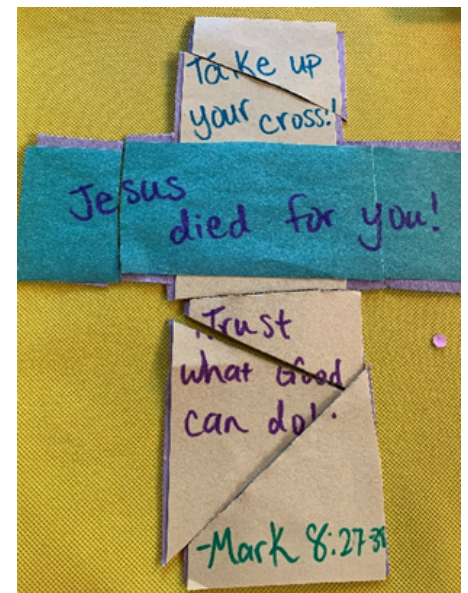 Take up
your cross!
Jesus
died for you!
Trust
what God
can do!
-Mark 8:27-38